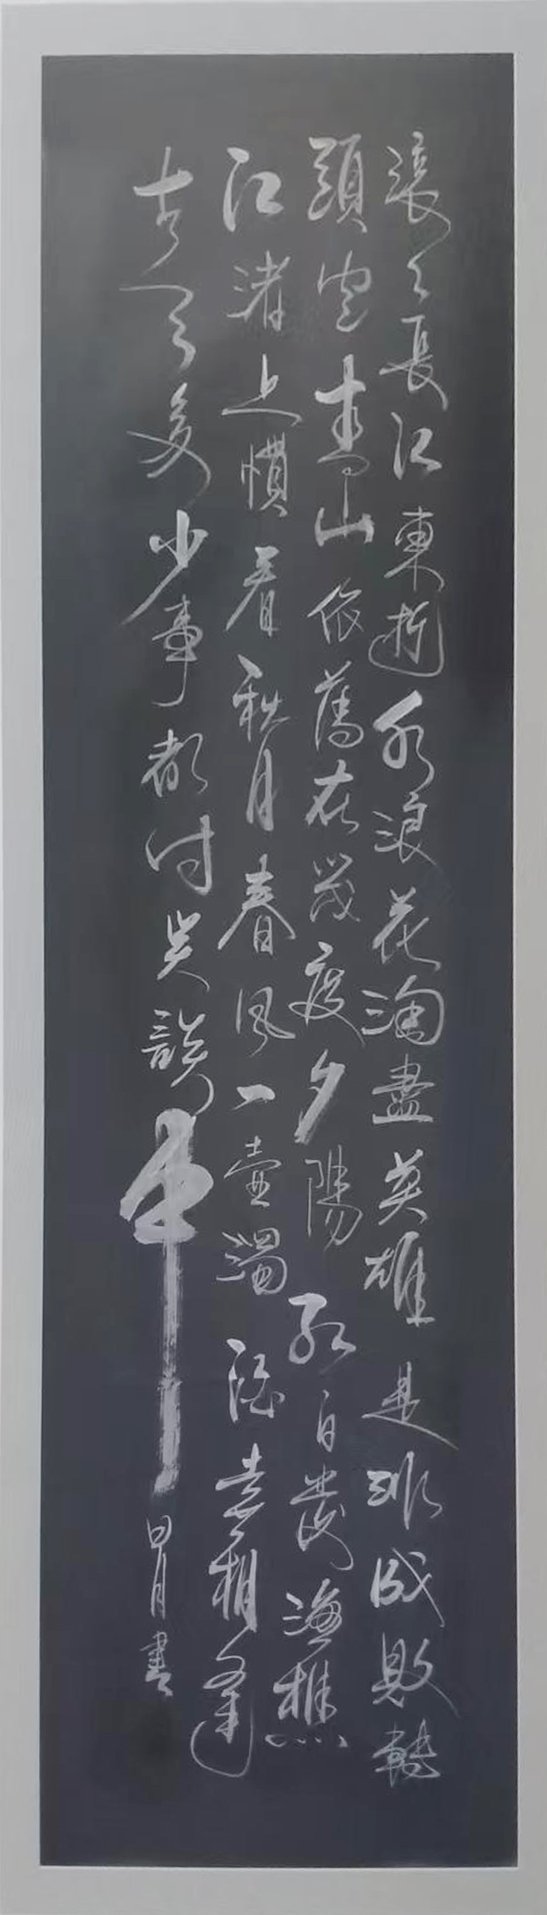 滾々長江東逝水浪花淘盡英雄是非成敗轉
頭空青山依舊在幾度夕陽紅白髮漁樵
江渚上慣看秋月春風一壺濁酒喜相逢
古今多少事都付笑談中 書